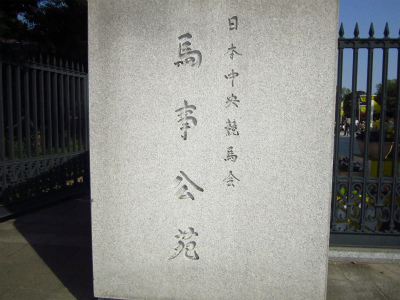 日本中央競馬会
馬事公苑